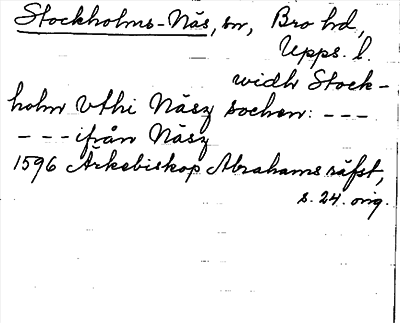 Stockholms-Näs, sn, Bro hd,
Upps. l.
widh Stock-
holm vthi Näsz sochen: ---
--- ifrån Näsz
1596 Ärkebiskop Abrahams räfst,
s. 24. orig.